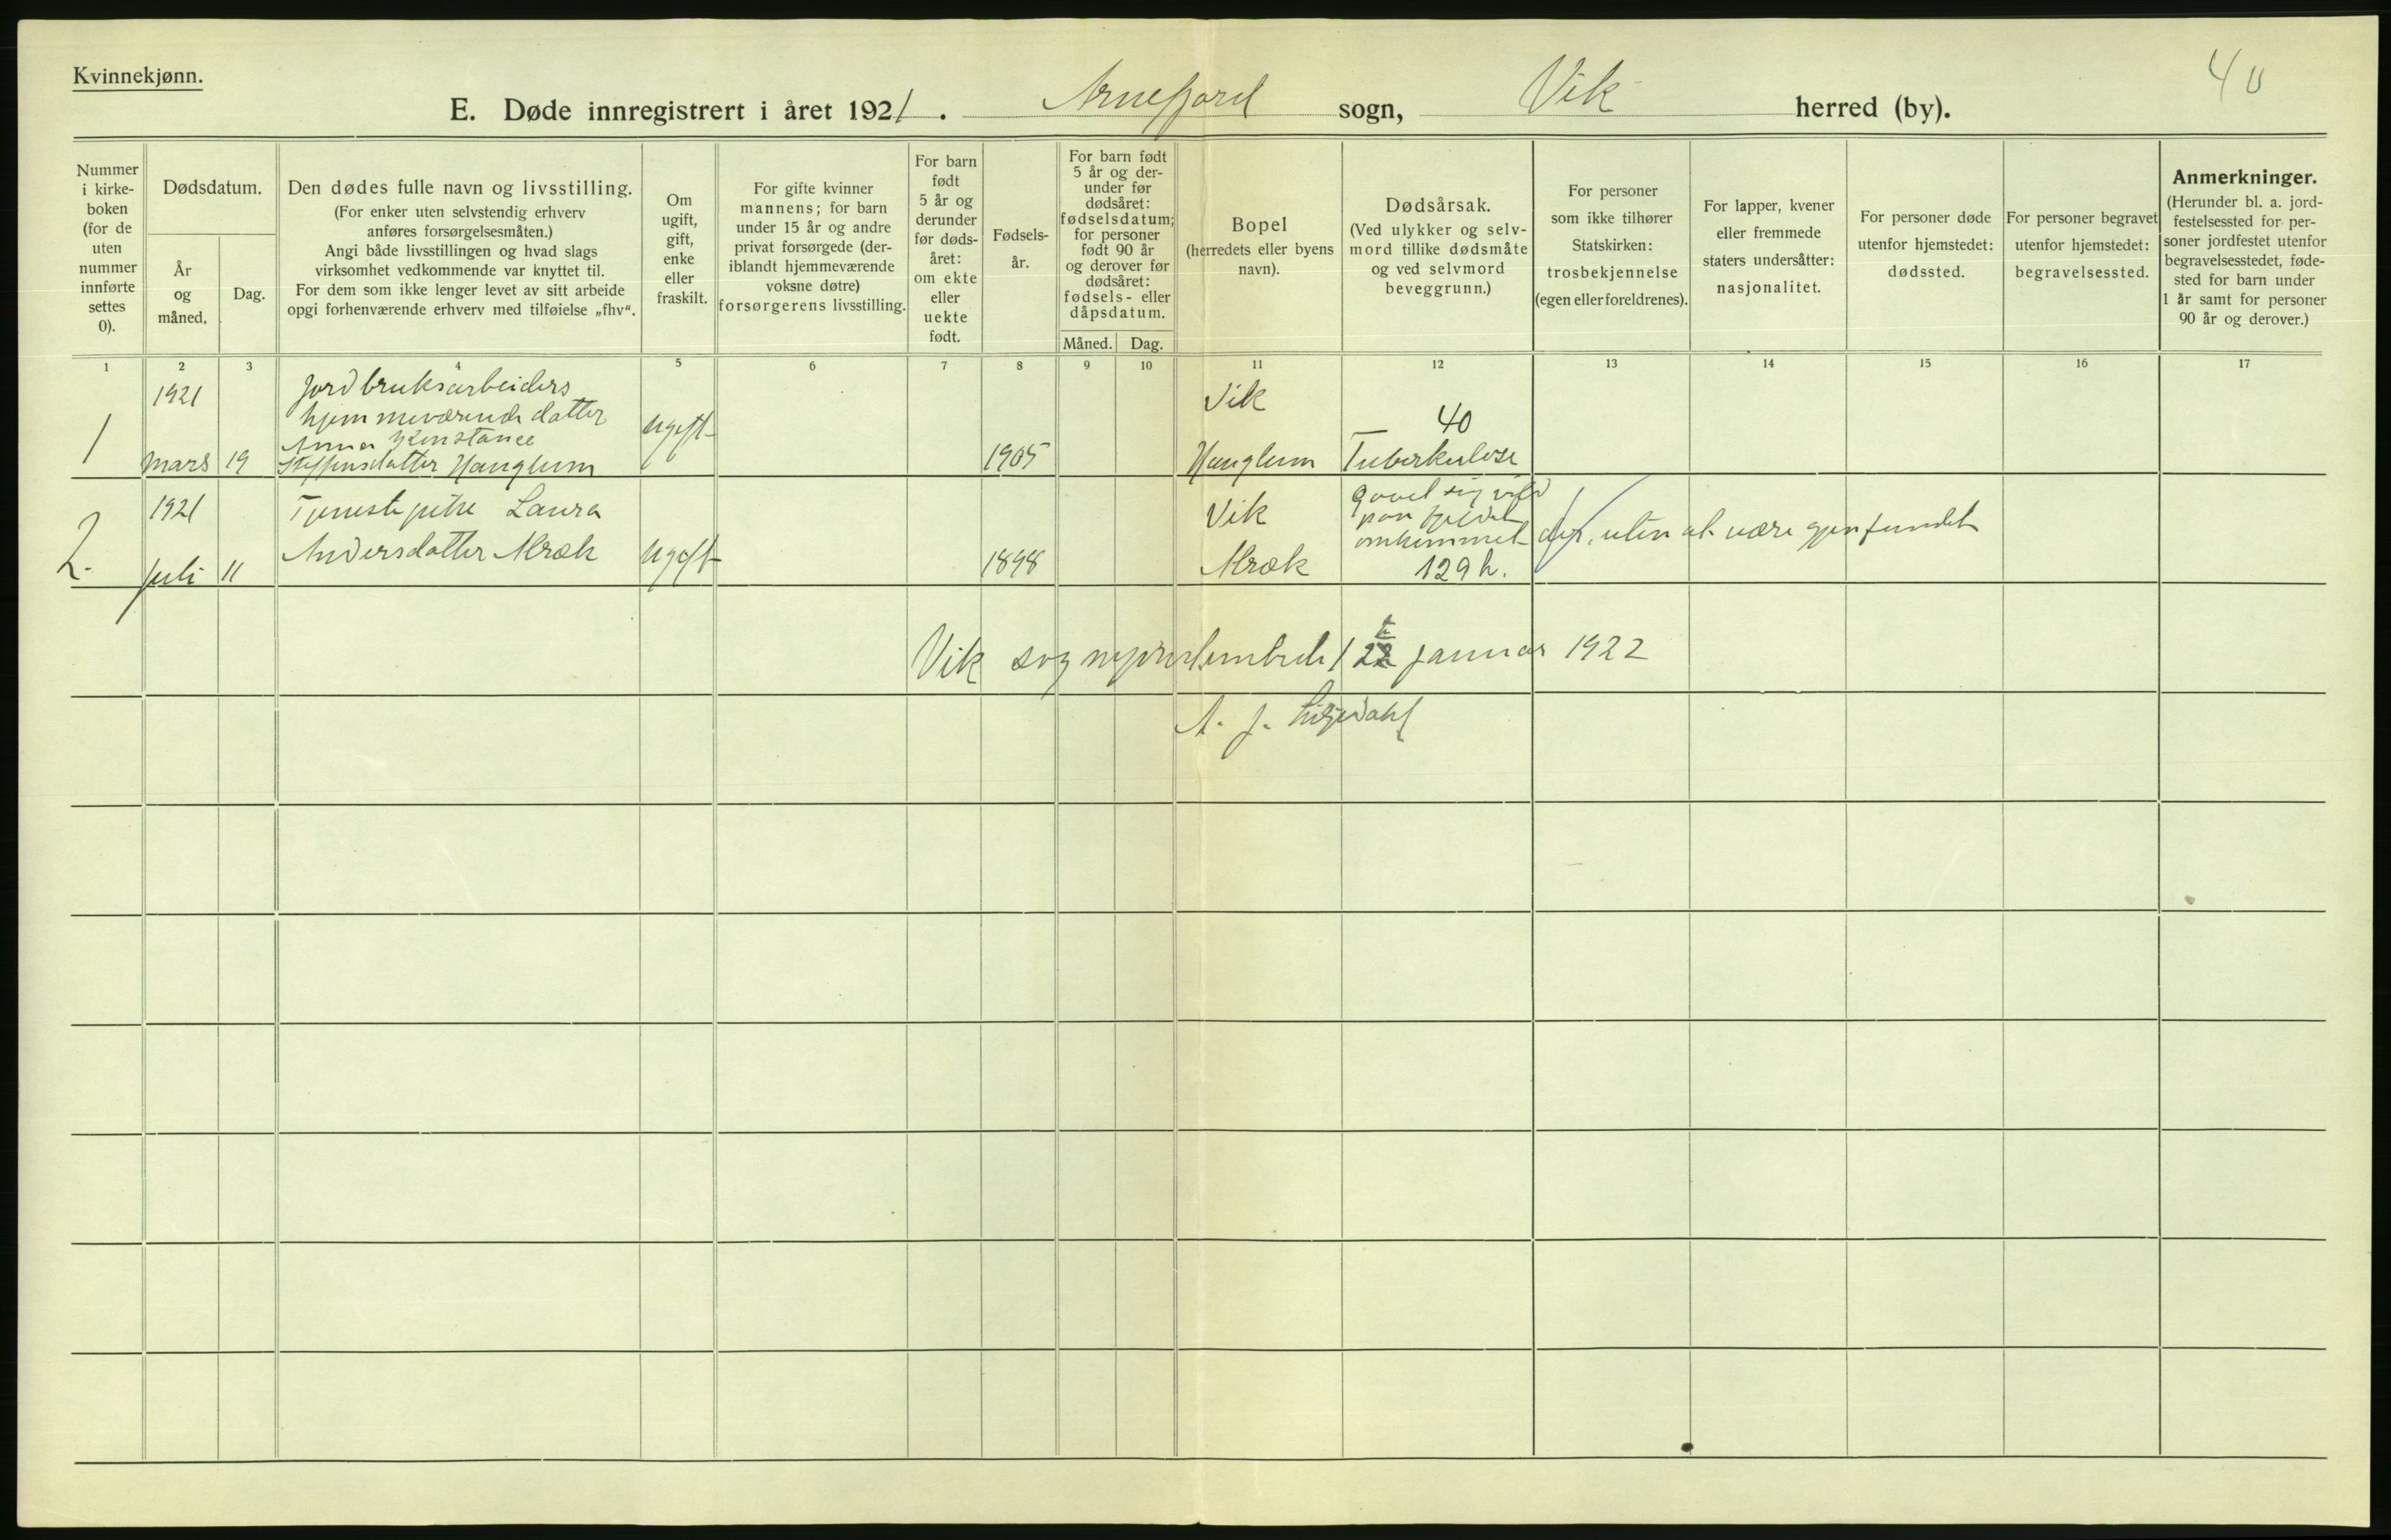 Kvinnekjønn.
40
E. Døde innregistrert i året 1921. Arnefjord sogn, Vik herred (by).
Nummer
i kirke-
boken
(for de
uten
nummer
innførte
settes
0).
Dødsdatum.
År
og
måned.
Dag.
Den dødes fulle navn og livsstilling.
(For enker uten selvstendig erhverv
anføres forsørgelsesmåten.)
Angi både livsstillingen og hvad slags
virksomhet vedkommende var knyttet til.
For dem som ikke lenger levet av sitt arbeide
opgi forhenværende erhverv med tilføielse „fhv“.
Om
ugift,
gift,
enke
eller
fraskilt.
For gifte kvinner
mannens; for barn
under 15 år og andre
privat forsørgede (der-
iblandt hjemmeværende
voksne døtre)
forsørgerens livsstilling.
For barn
født
5 år og
derunder
før døds-
året:
om ekte
eller
uekte
født.
Fødsels-
år.
For barn født
5 år og der-
under før
dødsåret:
fødselsdatum;
for personer
født 90 år
og derover før
dødsåret:
fødsels- eller
dåpsdatum.
Måned. Dag.
Bopel
(herredets eller byens
navn).
Dødsårsak.
(Ved ulykker og selv-
mord tillike dødsmåte
og ved selvmord
beveggrunn.)
For personer
som ikke tilhører
Statskirken:
trosbekjennelse
(egen eller foreldrenes).
For lapper, kvener
eller fremmede
staters undersåtter:
nasjonalitet.
For personer døde
utenfor hjemstedet:
dødssted.
For personer begravet
utenfor hjemstedet:
begravelsessted.
Anmerkninger.
(Herunder bl. a. jord-
festelsessted for per-
soner jordfestet utenfor
begravelsesstedet, føde-
sted for barn under
1 år samt for personer
90 år og derover.)
1 2 3 4 5 6 7 8 9 10 11 12 13 14 15 16 17
1921 Jordbruksarbeiders Vik
hjemmeværende datter 40
1 Anna Konstance ugift
mars 19 Steffensdatter Hanglum 1905 Hanglum Tuberkulose
1921 Tjenestepike Laura Vik
omkommet der, uten at være gjenfundet
2. juli 11 Andersdatter ugift 1898 129 h.
Vik sogneprestembede januar 1922
A. J. Liljedahl